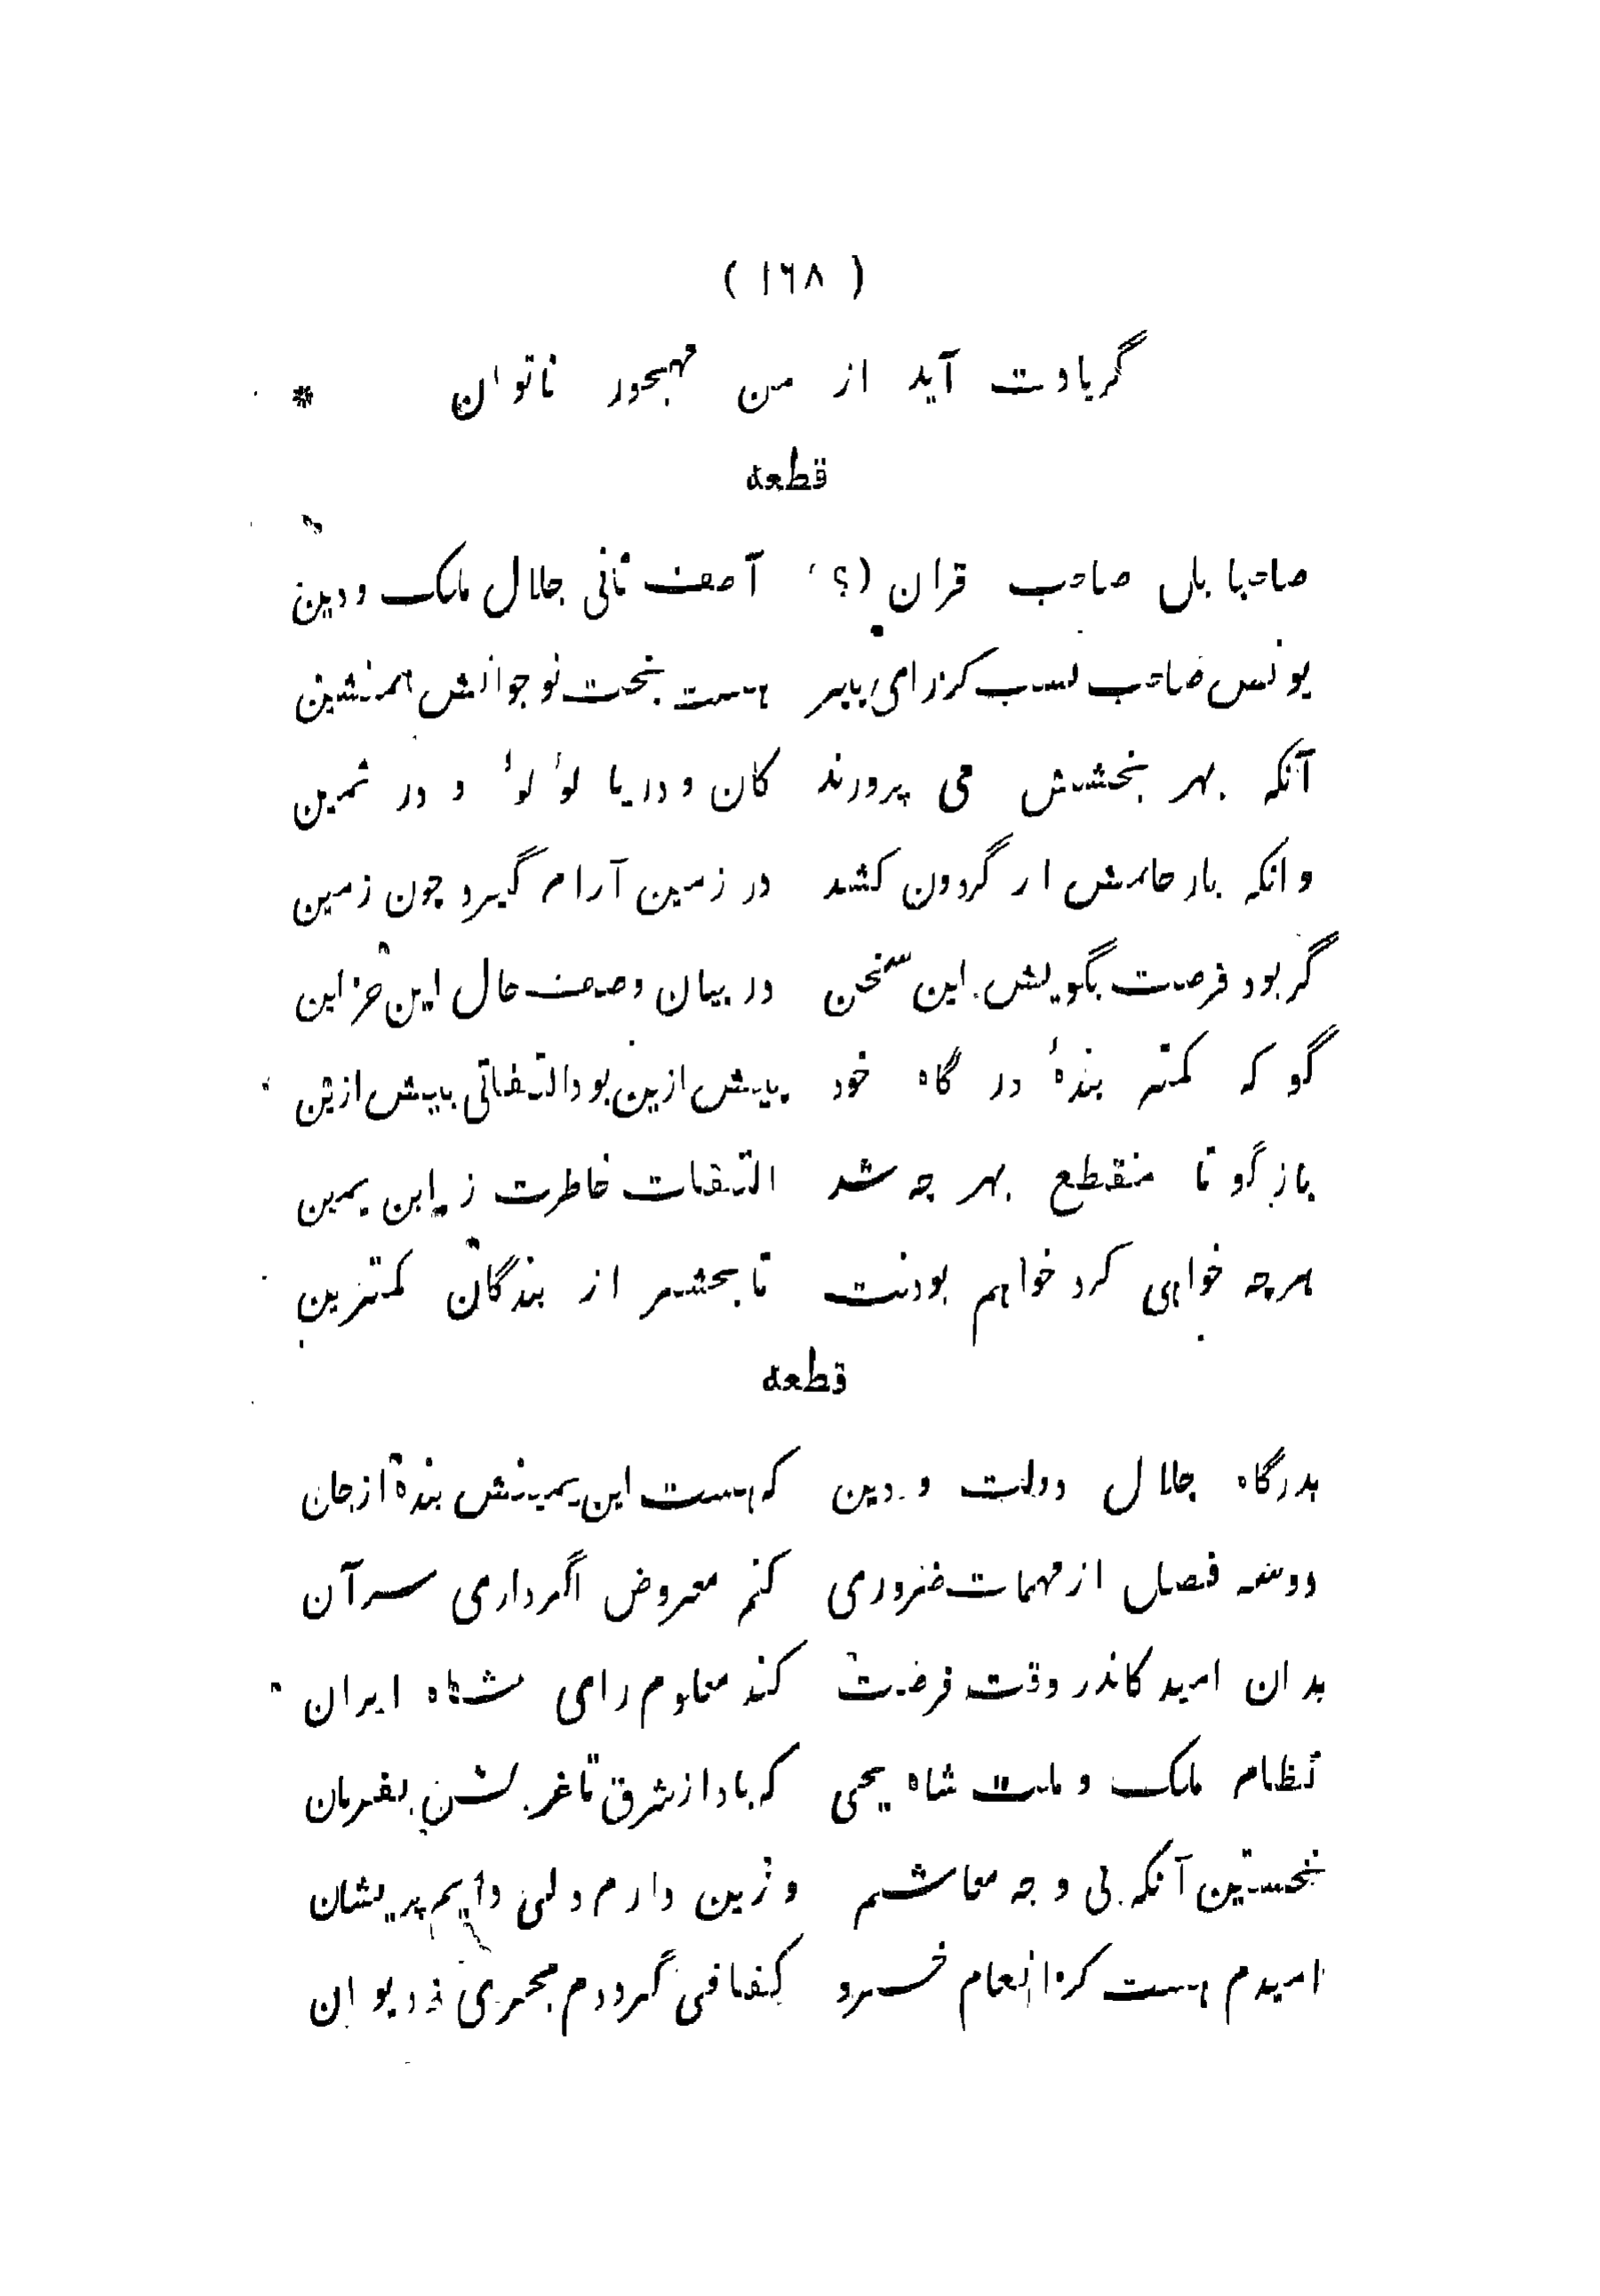 ( ۱۶۸ )
گریادت آید از من مهجور ناتوان *
قطعه
صاحبا بل صاحب قران (؟) آصف ثانی جلال ملک و دین
یونس صاحب نسب کز رای پیر هست بخت نوجوانش همنشین
آنکه بهر بخشش می پرورند کان و دریا لوٴ لوٴ و در ثمین
وانکه بار حلمش ار گردون کشد در زمین آرام گیرد چون زمین
گر بود فرصت بگویش این سخن در بیان وصف حال این حزین
گو که کمتر بندهٔ در گاه خود پیش ازین بود التفاتی بیش ازین
باز گو تا منقطع بهر چه شد التفات خاطرت ز ابن یمین
هرچه خواهی کرد خواهم بودنت تا بحشر از بندگان کمترین
قطعه
بدرگاه جلال دولت و دین که هست ابن یمینش بندهٔ از جان
دوسه فصل از مهمات ضروری کنم معروض اگر داری سر آن
بدان امید کاندر وقت فرصت کند معلوم رای شاه ایران
نظام ملک و ملت شاه یحیی که باد از شرق تا غربش بفرمان
نخستین آنکه بی وجه معاشم وزین دارم دلی دایم پریشان
امیدم هست کز انعام خسرو کفافی گرددم مجری ز دیوان